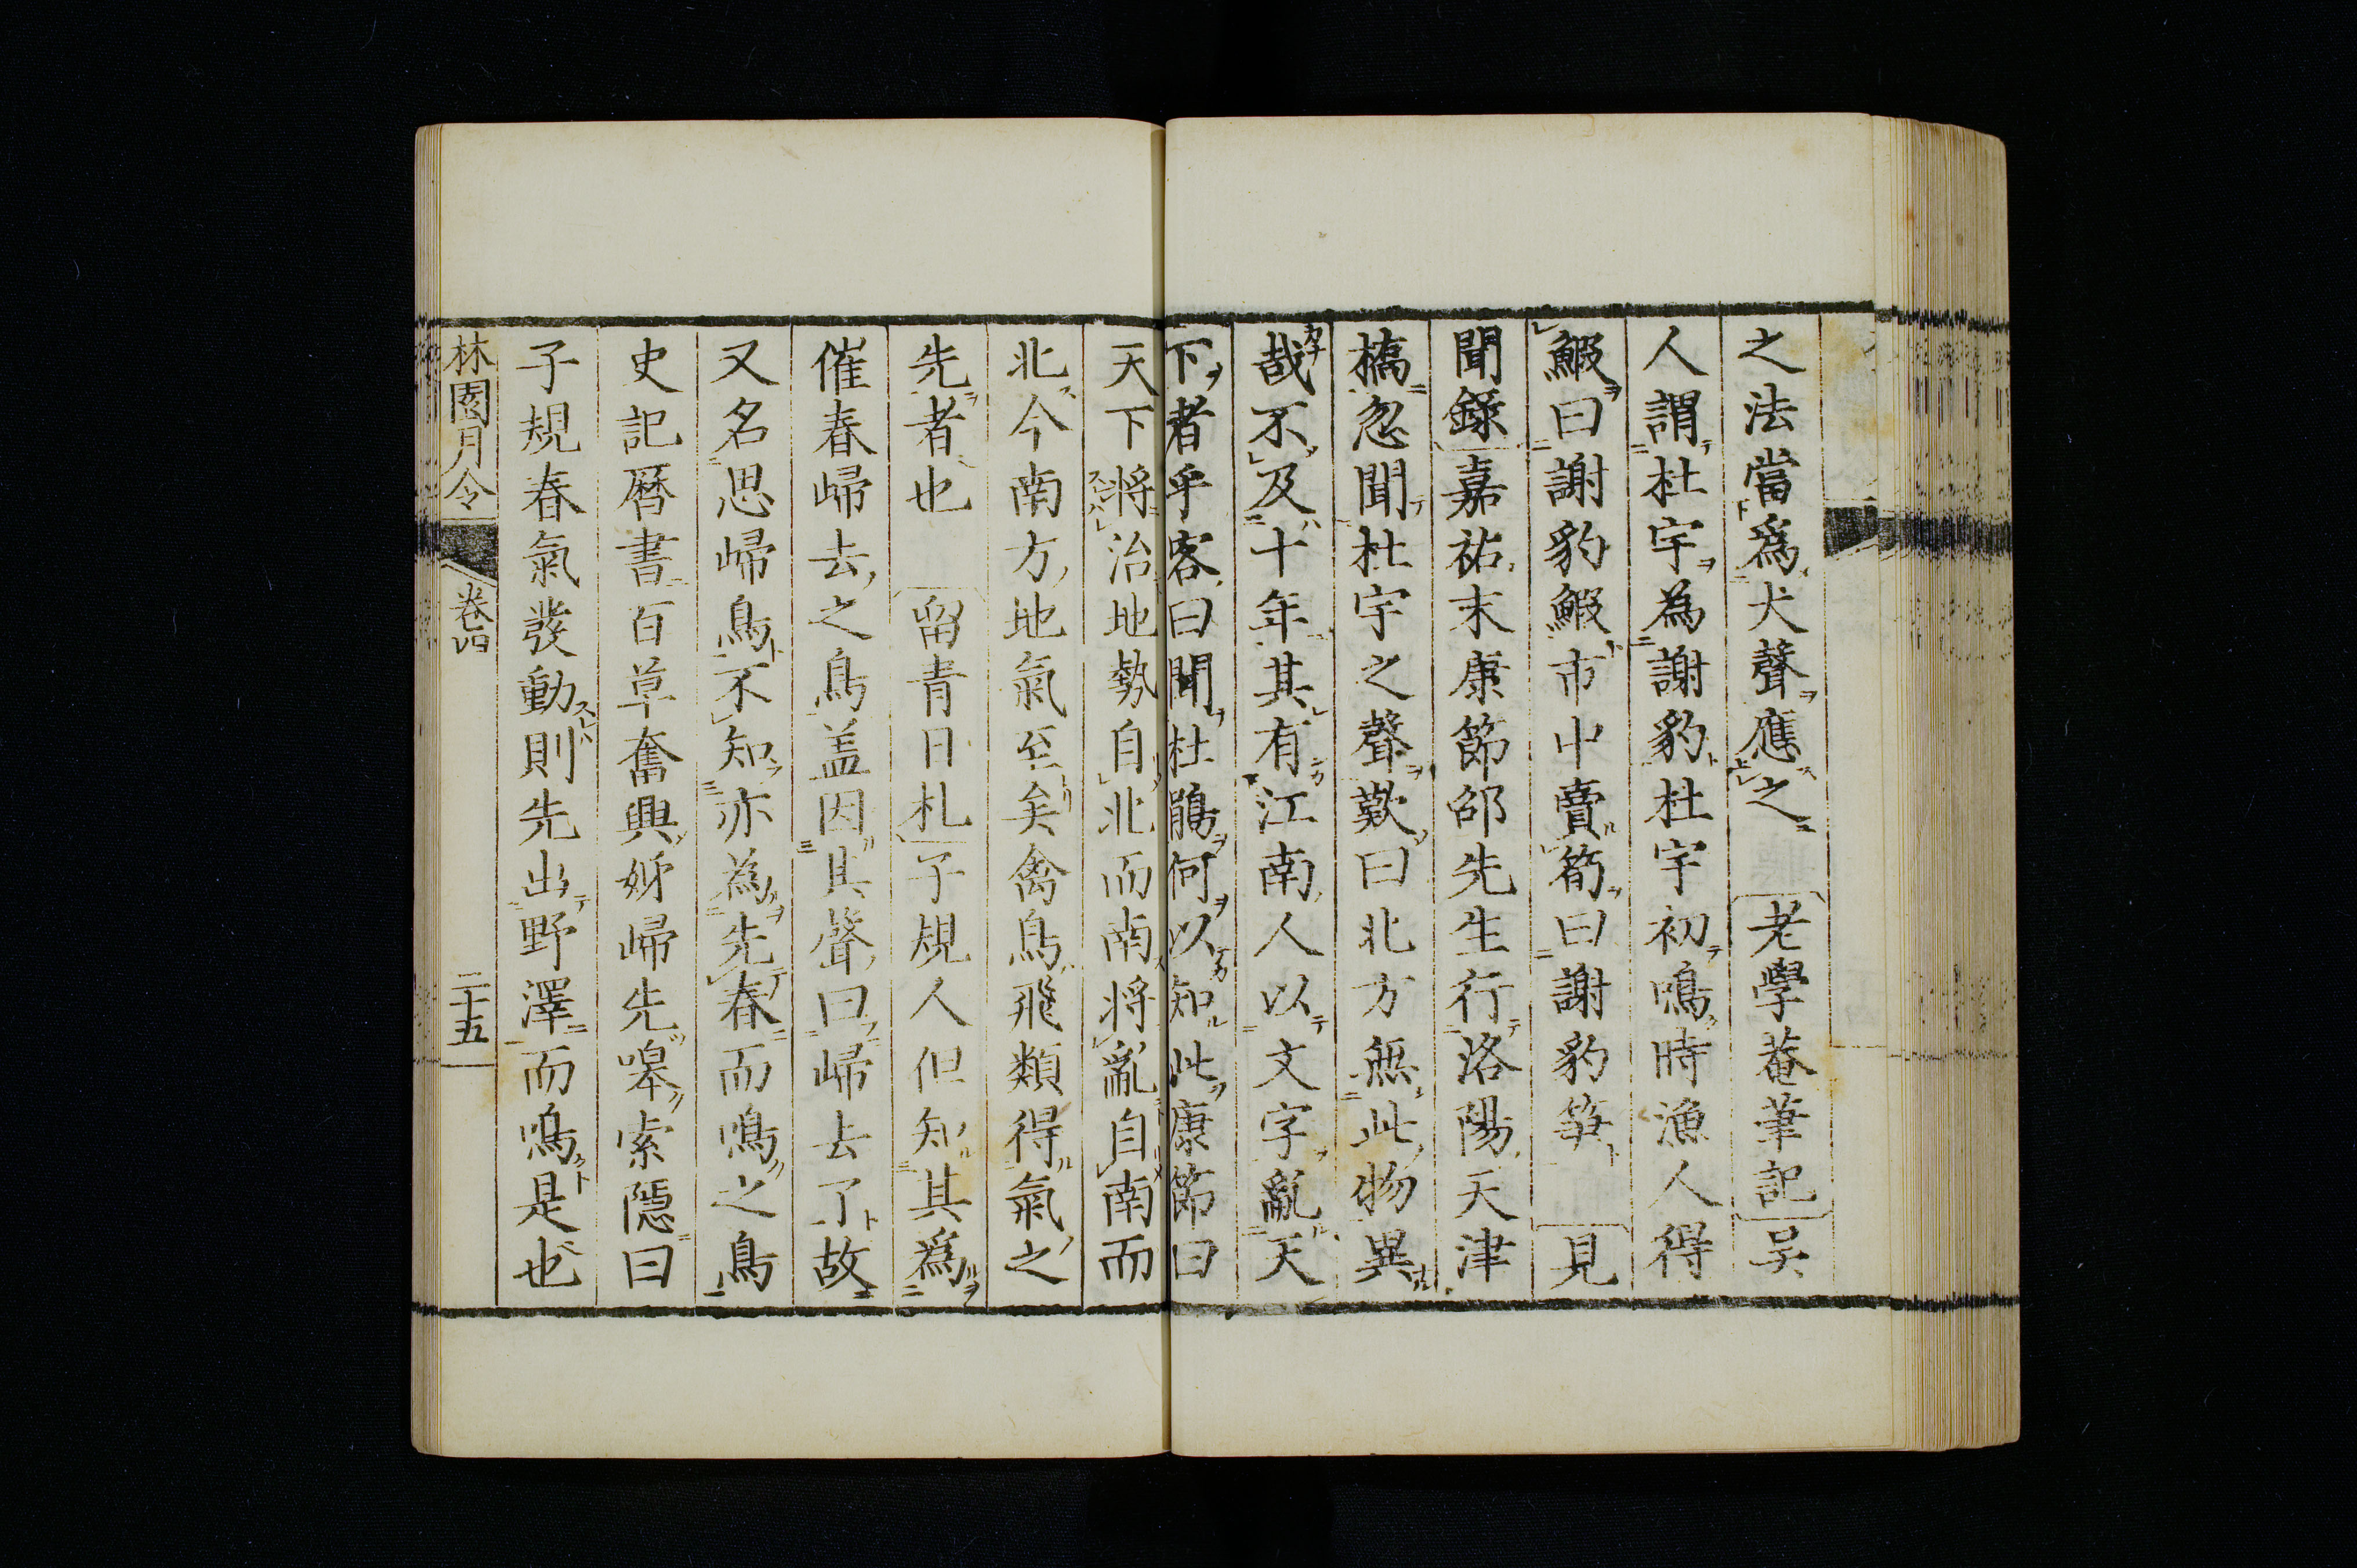 之法當爲犬聲應之 老學菴筆記吳
人謂杜宇為謝豹杜宇初鳴時漁人得
鰕曰謝豹鰕市中賣筍曰謝豹笋 見
聞錄嘉祐末康節邵先生行洛陽天津
橋忽聞杜宇之聲歎曰北方無此物異
哉不及十年其有江南人以文字亂天
下者乎客曰聞杜鵑何以知此康節曰
天下將治地勢自北而南將亂自南而
北今南方地氣至矣禽鳥飛類得氣之
先者也 留青日札子規人但知其爲
催春歸去之鳥盖因其聲曰歸去了故
又名思歸鳥不知亦為先春而鳴之鳥
史記曆書百草奮興姊歸先嘷索隱曰
子規春氣發動則先出野澤而鳴是也
林園月令 卷四 二十五